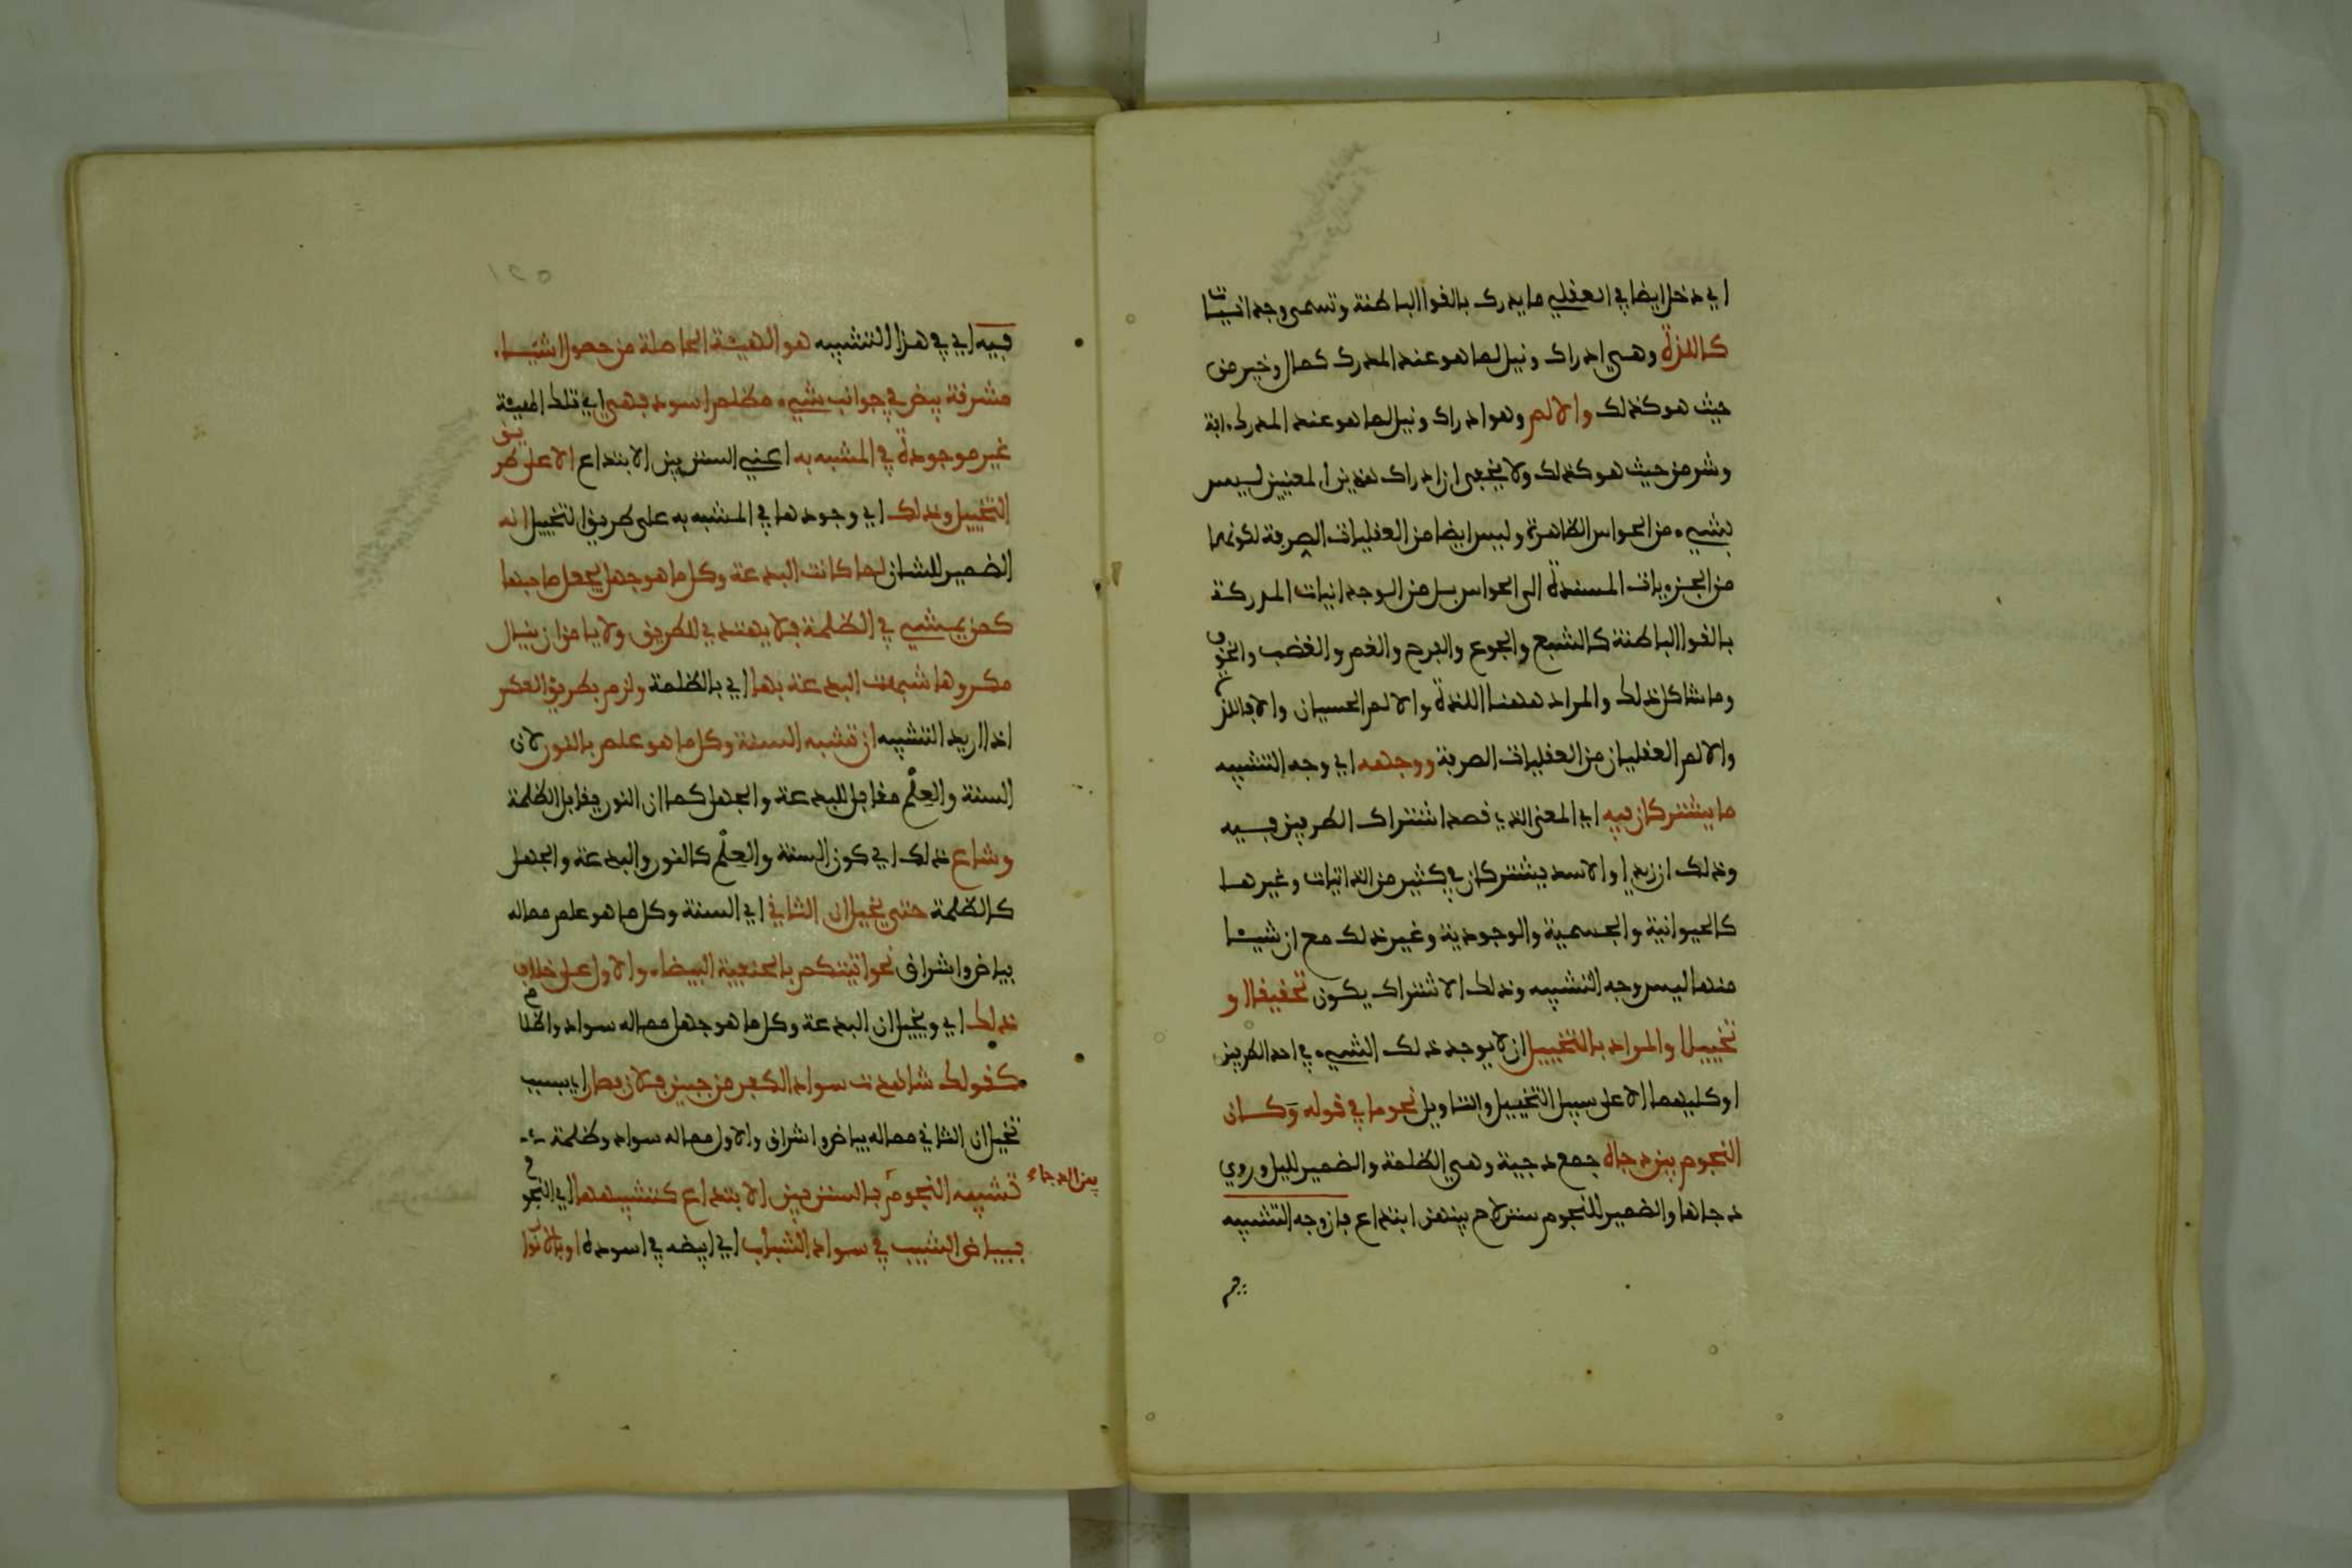 اي دخل ايضا في العقلي ما يدرك بالقوا الباطنة وتسمى وجدانيات
كاللذة وهي ادراك ونيل لما هو عند المدرك كمال وخير من
حيث هو كذلك والالم وهو ادراك ونيل لما هو عند المدرك ءافة
وشر من حيث هو كذلك ولا يخفى ان ادراك هذين المعنيين ليس
بشيء من الحواس الظاهرة وليس ايضا من العقليات الصرفة لكونهما
من الجزويات المستندة الى الحواس بل من الوجدانيات المدركة
بالقوا الباطنة كالشبع والجوع والفرح والغم والغضب والخوف
وما شاكل ذلك والمراد ههنا اللذة والالم الحسيان والا فاللذة
والالم العقليان من العقليات الصرفة ووجهه اي وجه التشبيه
ما يشتركان فيه اي المعنى الذي قصد اشتراك الطرفين فيه
وذلك ان زيدا والاسد يشتركان في كثير من الذاتيات وغيرها
كالحيوانية والجسمية والوجودية وغير ذلك مع ان شيئا
منها ليس وجه التشبيه وذلك الاشتراك يكون تحقيقا او
تخييلا والمراد بالتخييل ان لا يوجد ذلك الشيء في احد الطرفين
او كليهما الا على سبيل التخييل والتاويل نحو ما في قوله وكان
النجوم بين دجاه جمع دجية وهي الظلمة والضمير لليل وروي
دجاها والضمير للنجوم سنن لاح بينهن ابتداع فان وجه التشبيه
فيه اي في هذا التشبيه هو الهيئة الحاصلة من حصول اشياء
مشرقة بيض في جوانب شيء مظلم اسود فهي اي تلك الهيئة
غير موجودة في المشبه به اعني السنن بين الابتداع الا على طريق
التخييل وذلك اي وجودها في المشبه به على طريق التخييل انه
الضمير للشان لما كانت البدعة وكل ما هو جهل يجعل صاحبها
كمن يمشي في الظلمة فلا يهتدي للطريق ولا يامن ان ينال
مكروها شبهت البدعة بها اي بالظلمة ولزم بطريق العكس
اذا اريد التشبيه ان تشبه السنة وكل ما هو علم بالنور لان
السنة والعِلْم مقابل للبدعة والجهل كما ان النور يقابل الظلمة
وشاع ذلك اي كون السنة والعِلْم كالنور والبدعة والجهل
كالظلمة حتى يخيل ان الثاني اي السنة وكل ما هو علم مما له
بياض واشراق نحو اتيتكم بالحنيفية البيضاء والاول على خلاف
ذلك اي ويخيل ان البدعة وكل ما هو جهل مما له سواد واظلام
كقولك شاهدت سواد الكفر من جبين فلان فصار اي بسبب
تخيل ان الثاني مما له بياض واشراق والاول مما له سواد وظلمة
تشبيه النجوم بالسنن بين الابتداع كتشبيهها اي النجوم
بين الدجاء
ببياض الشيب في سواد الشباب اي ابيضه في اسوده او بالانوار